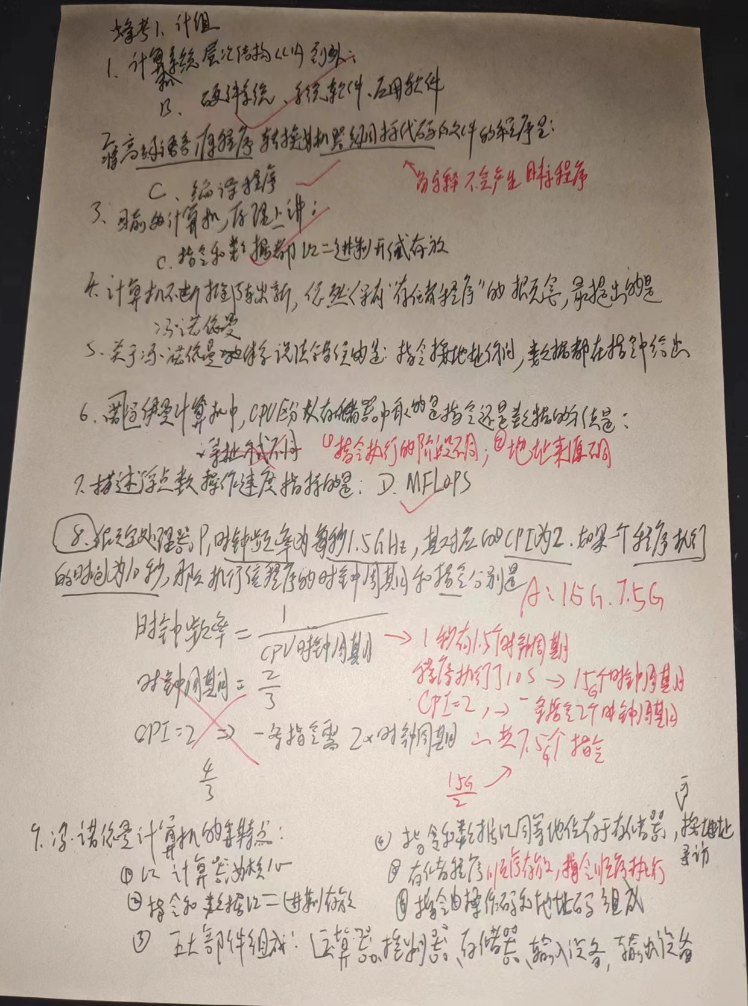 1. 计组
1. 计算系统层次结构从内到外:
B. 硬件系统、系统软件、应用软件
2. 将高级语言源程序转换为机器级目标代码的文件的程序是:
C. 编译程序
解释不会产生目标程序
3. 目前的计算机,原理上讲:
C. 指令和数据都以二进制形式存放
4. 计算机不断推陈出新,仍然保有"存储程序"的概念,最早提出的是
冯·诺依曼
5. 关于冯·诺依曼体系说法错误的是: 指令按地址访问,数据都在指令中给出
6. 冯·诺依曼计算机中,CPU区分从存储器中取的是指令还是数据的依据是:
寻址方式不同 ①指令执行的阶段不同;②地址来源不同
7. 描述浮点数操作速度指标的是: D. MFLOPS
8. 给定处理器P,时钟频率为每秒1.5GHz,其对应的CPI为2. 如果一个程序执行
的时间为10秒,那么执行该程序的时钟周期和指令分别是
A: 15G. 7.5G
时钟频率 = 1/CPU时钟周期 → 1秒有1.5G个时钟周期
程序执行了10S → 15G个时钟周期
时钟周期 = 2/3
CPI=2, → 一条指令2个时钟周期
CPI=2 ⇒ 一条指令需 2×时钟周期 ∴共7.5G个指令
4/3
15G/2
9. 冯·诺依曼计算机的特点:
①以运算器为核心
②指令和数据以二进制存放
③ 五大部件组成: 运算器、控制器、存储器、输入设备,输出设备
④ 指令和数据以同等地位存于存储器, 可按地址寻访
⑤ 存储程序 顺序存放,指令顺序执行
⑥ 指令由操作码和地址码组成